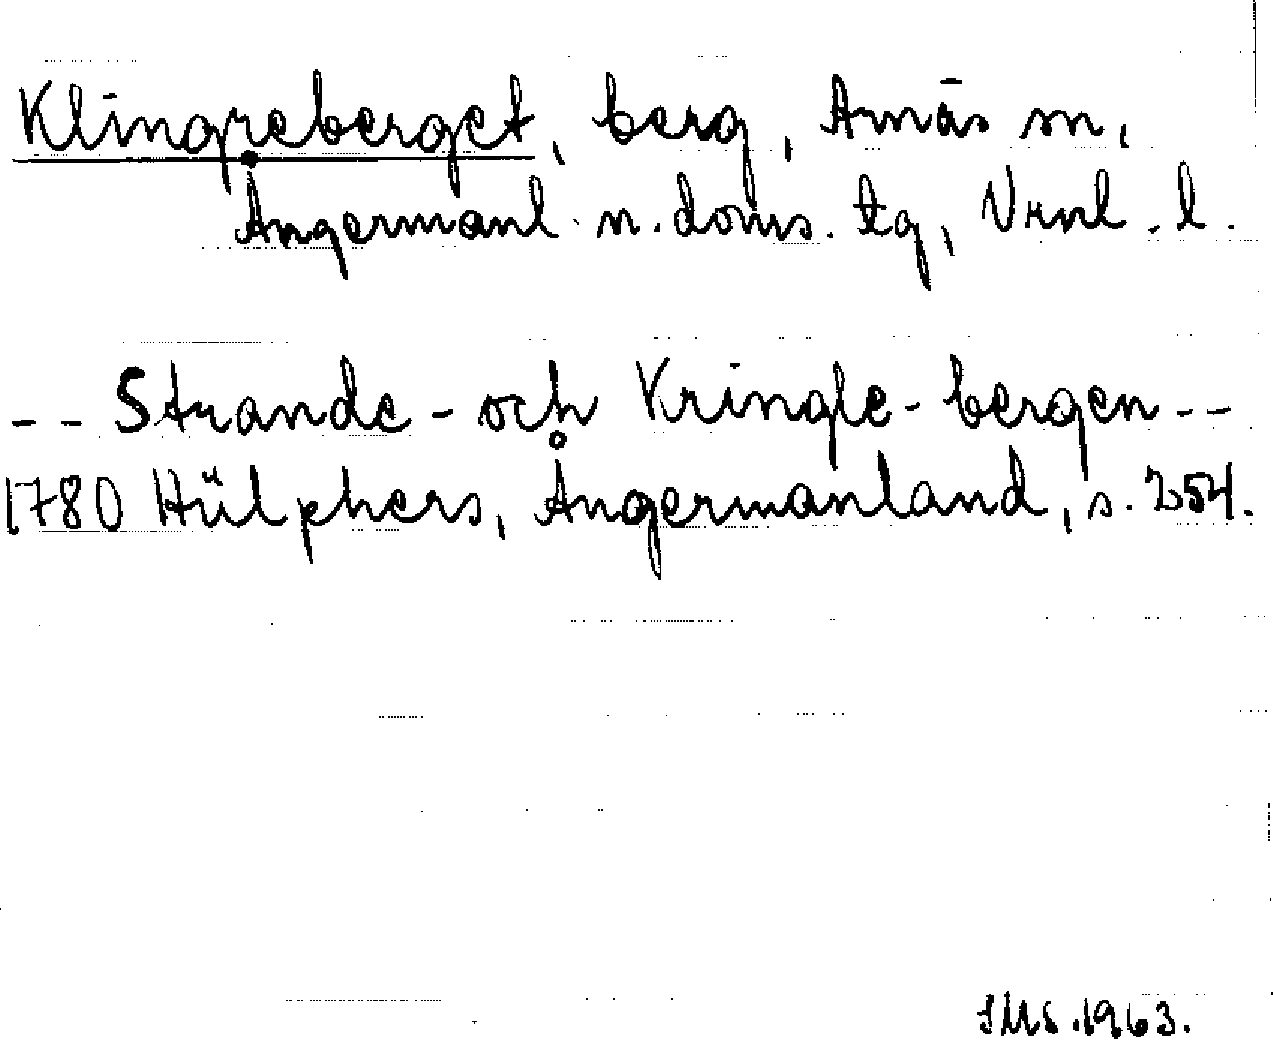 Klingreberget, berg, Arnäs sn,
Ångermanl. n. doms. tg, Vrnl. l.
-- Strande- och Kringle-bergen --
1780 Hülphers, Ångermanland, s. 254.
SMS. 1963.